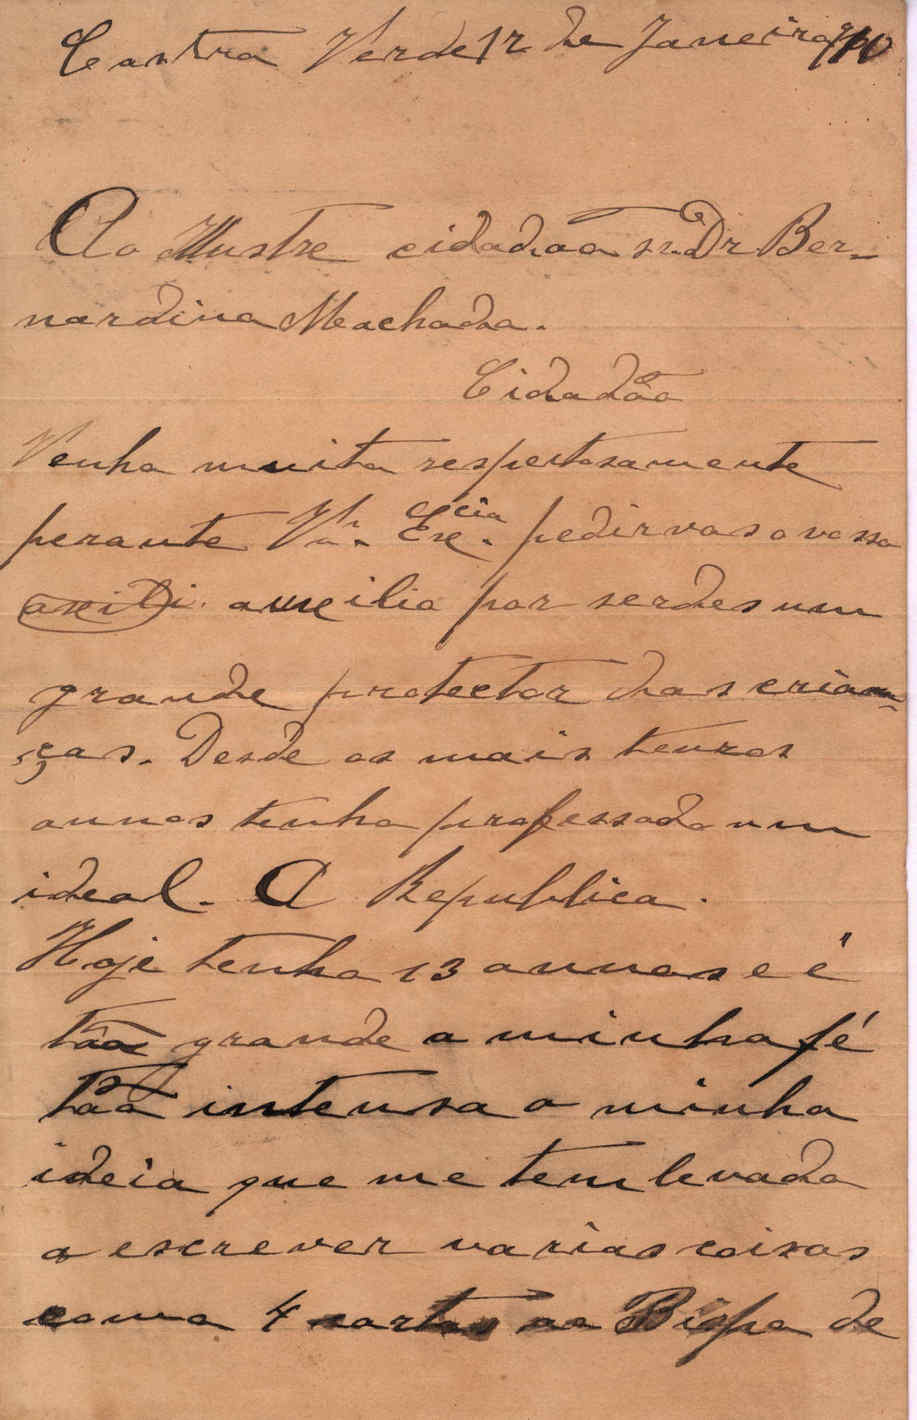 Castro Verde 12 de Janeiro 910
Ao Illustre cidadão sr. Dr Ber-
nardino Machado.
Cidadão
Venho muito respeitosamente
perante Va. Excia. pedir vos o vosso
auxilio por serdes um
grande protector das crian-
ças. Desde os mais tenros
annos tenho professado um
ideal. A Republica.
Hoje tenho 13 annos e é
tão grande a minha fé
tão intensa a minha
ideia que me tem levado
a escrever varias coisas
como 4 cartas ao Bispo de